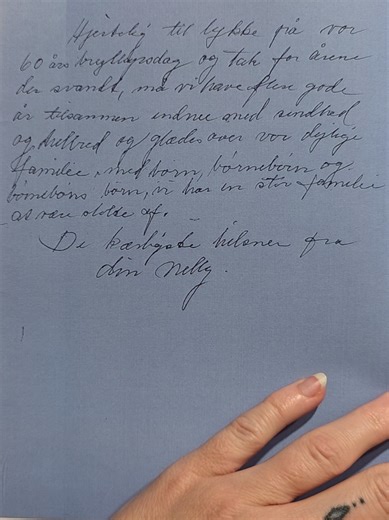 Hjertelig til lykke på vor
60 års bryllupsdag og tak for årene
der svandt, må vi have flere gode
år tilsammen endnu med sundhed
og helbred og glædes over vor dejlige
familie, med børn, børnebørn og
børnebørns børn, vi har en stor familie
at være stolte af.
De kærligste hilsner fra
din Nelly.